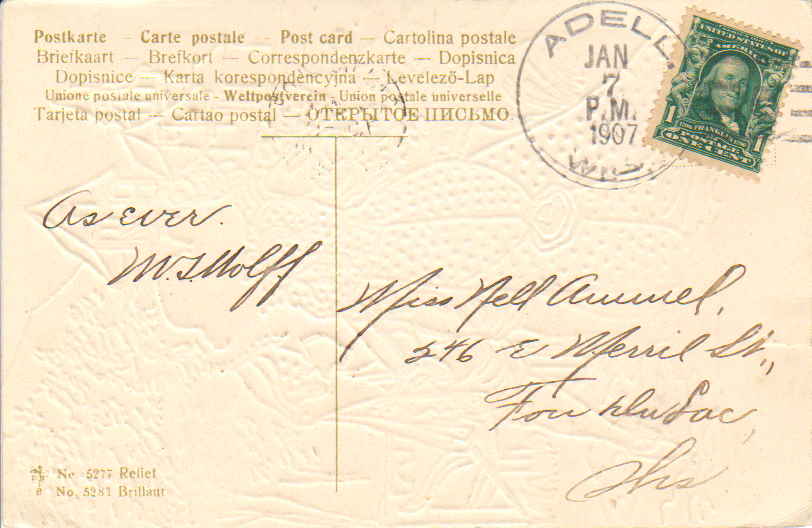 Postkarte – Carte postale – Post card – Cartolina postale
Briefkaart – Brefkort – Correspondenzkarte – Dopisnica
Dopisnice – Karta korespondèncyjna – Levelezö-Lap
Unione postale universale - Weltpostverein - Union postale universelle
Tarjeta postal – Cartao postal – ОТКРЫТОЕ ПИСЬМО.
ADELL
JAN
7
P.M.
1907
WIS.
UNITED STATES OF
AMERICA
FRANKLIN
1 POSTAGE 1
ONE CENT
As ever.
Miss Nell Ammel,
546 E Merril St.,
Fon du Lac,
No. 5277 Relief
No. 5281 Brillant